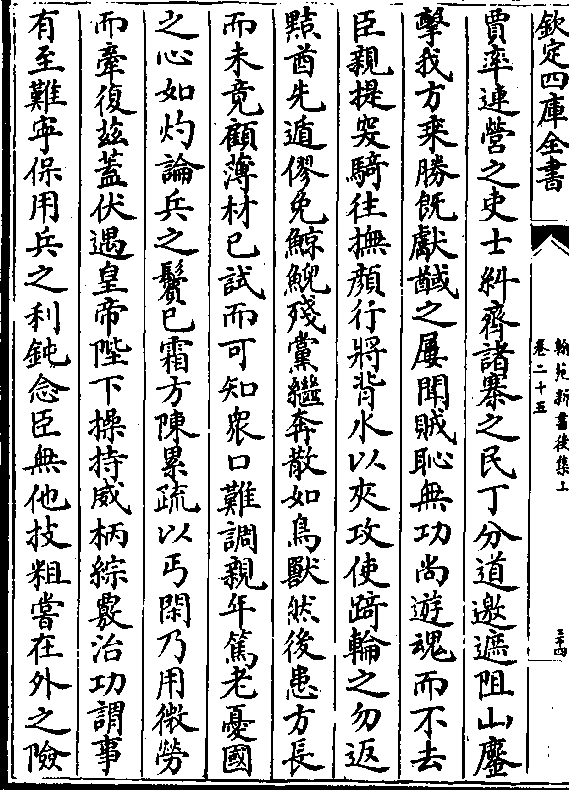 欽定四庫全書
翰苑新書後集上
卷二十五
三十四
賈率連營之吏士糾齊諸寨之民丁分道邀遮阻山鏖
擊我方乘勝旣獻馘之屢聞賊恥無功尚遊魂而不去
臣親提突騎往撫顔行將背水以夾攻使踦輪之勿返
黠酋先遁僇免鯨鯢殘黨繼奔散如鳥獸然後患方長
而未竟顧薄材已試而可知衆口難調親年篤老憂國
之心如灼論兵之鬢已霜方陳累疏以丐閑乃用微勞
而牽復兹蓋伏遇皇帝陛下操持威柄綜覈治功謂事
有至難寜保用兵之利鈍念臣無他技粗嘗在外之險